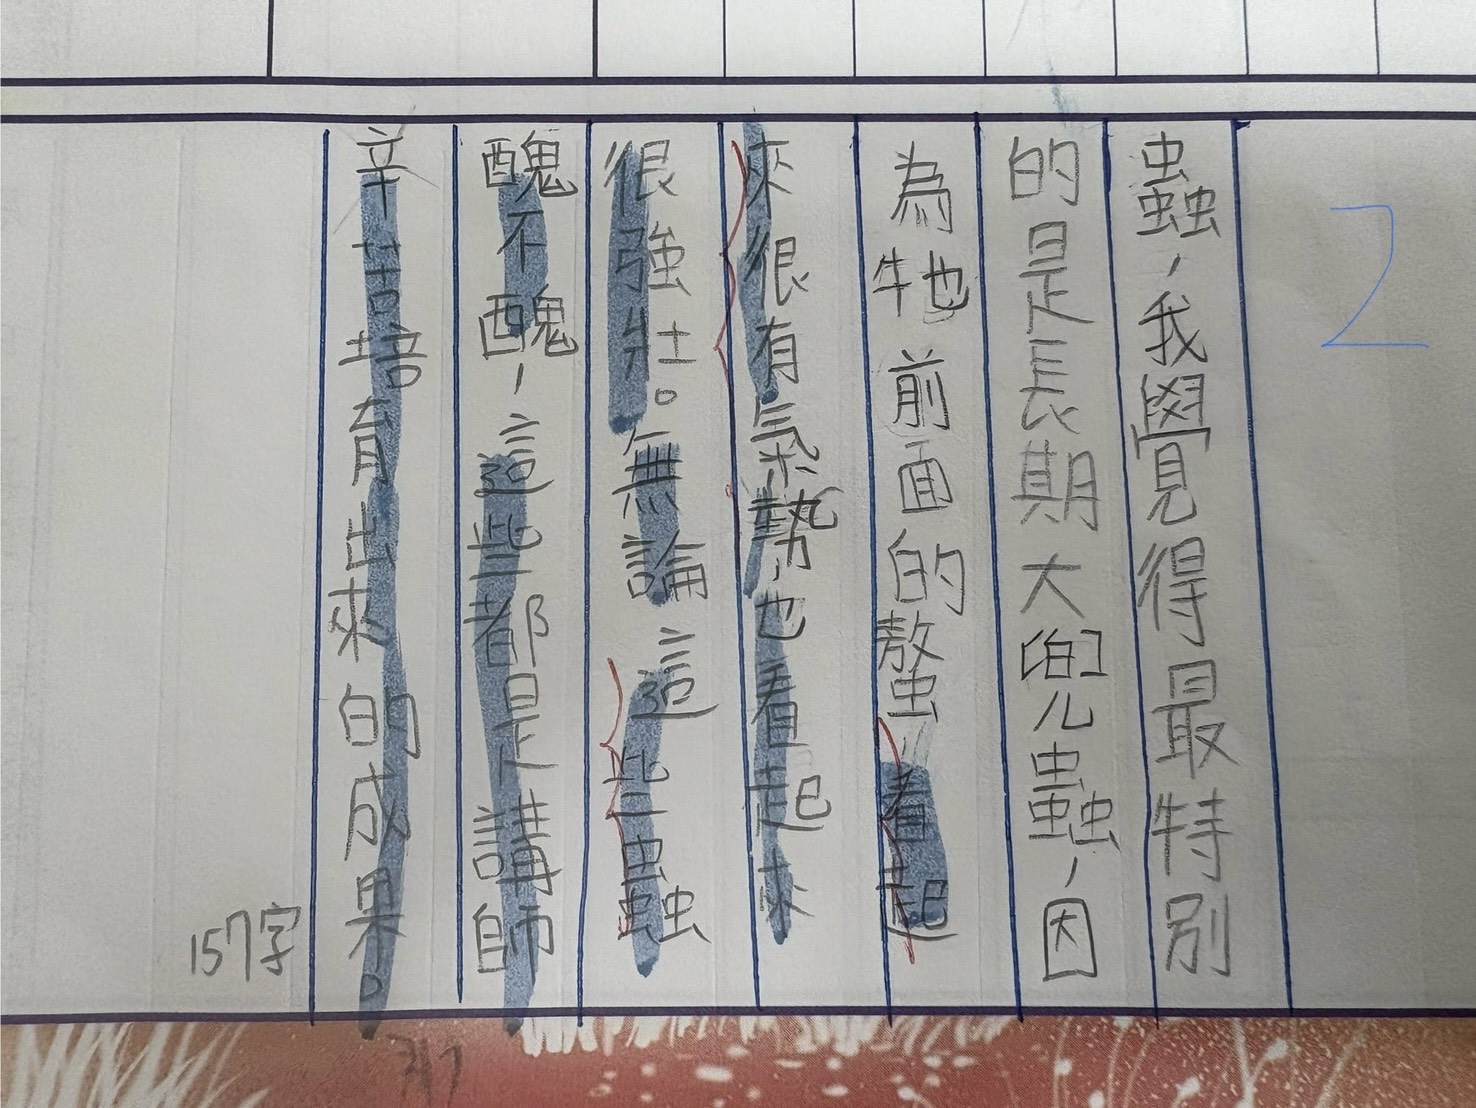 2
蟲,我覺得最特別
的是長期大兜蟲,因
為牠前面的螯看起
來很有氣勢,也看起來
很強壯。無論這些蟲
醜不醜,這些都是講師
辛苦培育出來的成果。
157字